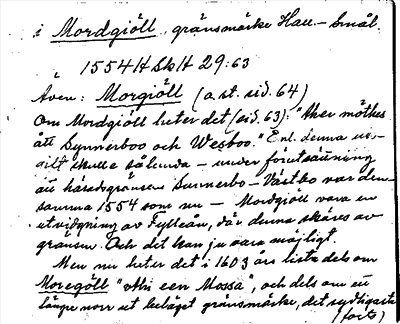 i Mordgiöll, gränsmärke Hall.–Smål.
1554 H Sk H 29:63
Även: Morgiöll (a. st. sid. 64)
Om Mordgiöll heter det (sid. 63): "Ther möthes
ått Synnerboo och Wesboo." Enl. denna upp-
gift skulle således – under förutsättning
att häradsgränsen Sunnerbo–Västbo var den-
samma 1554 som nu – Mordgiöll vara en
utvidgning av Fylleån, där denna skäres av
gränsen. Och det kan ju vara möjligt.
Men nu heter det i 1603 års lista dels om
Moregöll "uthi een Mossa", och dels om ett
längre norr ut beläget gränsmärke, det sydligaste
(forts)